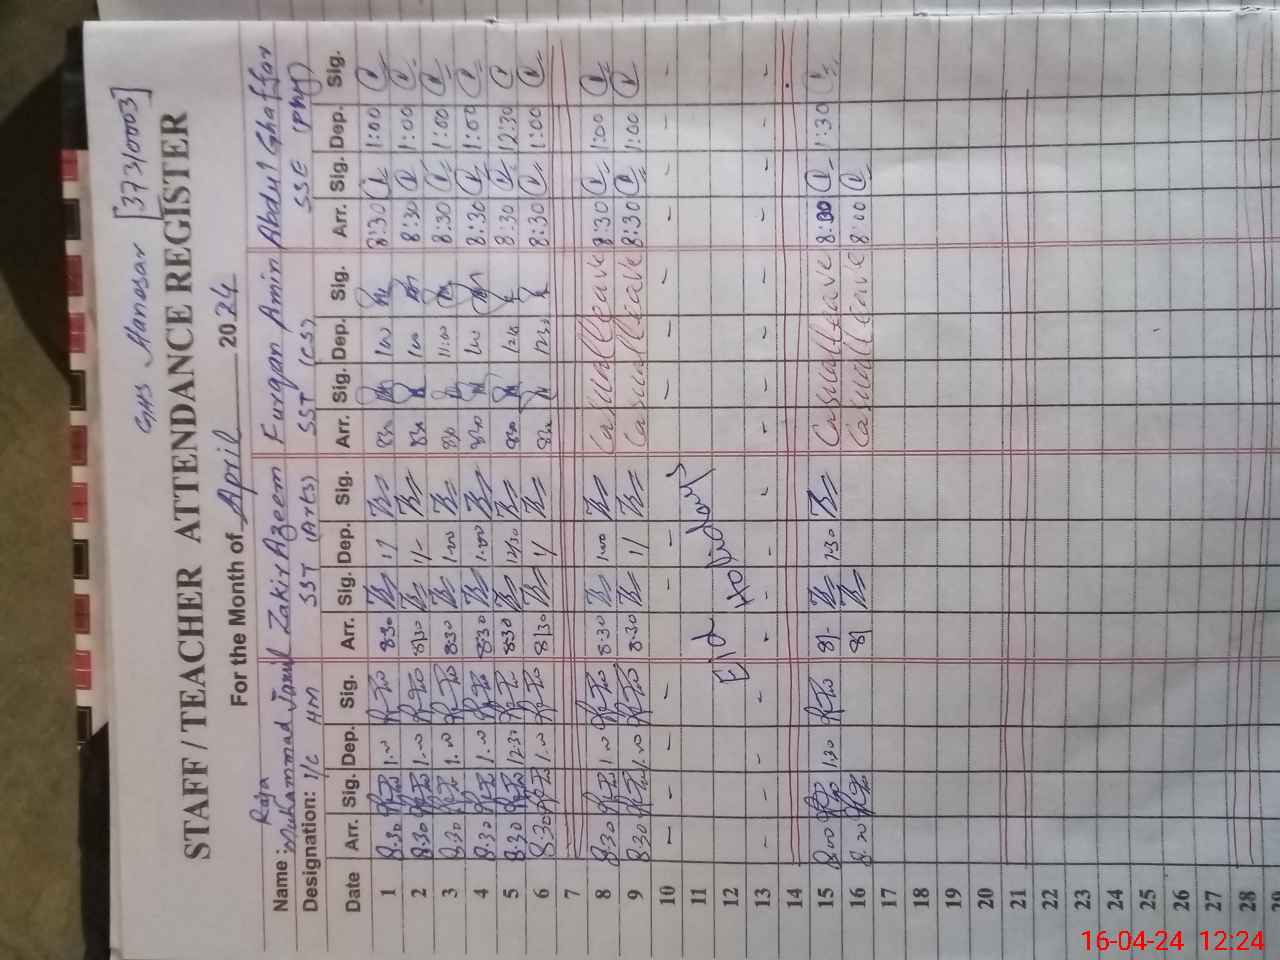 GHS Manasar [37310003]
STAFF / TEACHER ATTENDANCE REGISTER
For the Month of April 2024
Name: Raja Muhammad Jamil Zakir Azeem Furqan Amin Abdul Ghaffar
Designation: I/C HM SST (Arts) SST (CS) SSE (Phy)
Date Arr. Sig. Dep. Sig. Arr. Sig. Dep. Sig. Arr. Sig. Dep. Sig. Arr. Sig. Dep. Sig.
1 8:30 1:00 8:30 1/ 830 1:00 8:30 1:00
2 8:30 1:00 8/30 1/- 830 1:00 8:30 1:00
3 8:30 1:00 8:30 1:00 830 11:00 8:30 1:00
4 8:30 1:00 8:30 1:00 830 1:00 8:30 1:00
5 8:30 12:30 8:30 12/30 830 8:30 12:30
6 8:30 1:00 8/30 1/ 830 1230 8:30 1:00
7
8 8:30 1:00 8:30 1:00 Casual leave 8:30 1:00
9 8:30 1:00 8:30 1/ Casual leave 8:30 1:00
10 - - - - - - - - - - - - - - - -
11 Eid Holidays
12
13 - - - - - - - - - - - - - - - -
14
15 8:00 1:30 8/- 1:30 Casual leave 8:00 1:30
16 8:00 8/ Casual leave 8:00
17
18
19
20
21
22
23
24
25
26
27
28
29
16-04-24 12:24